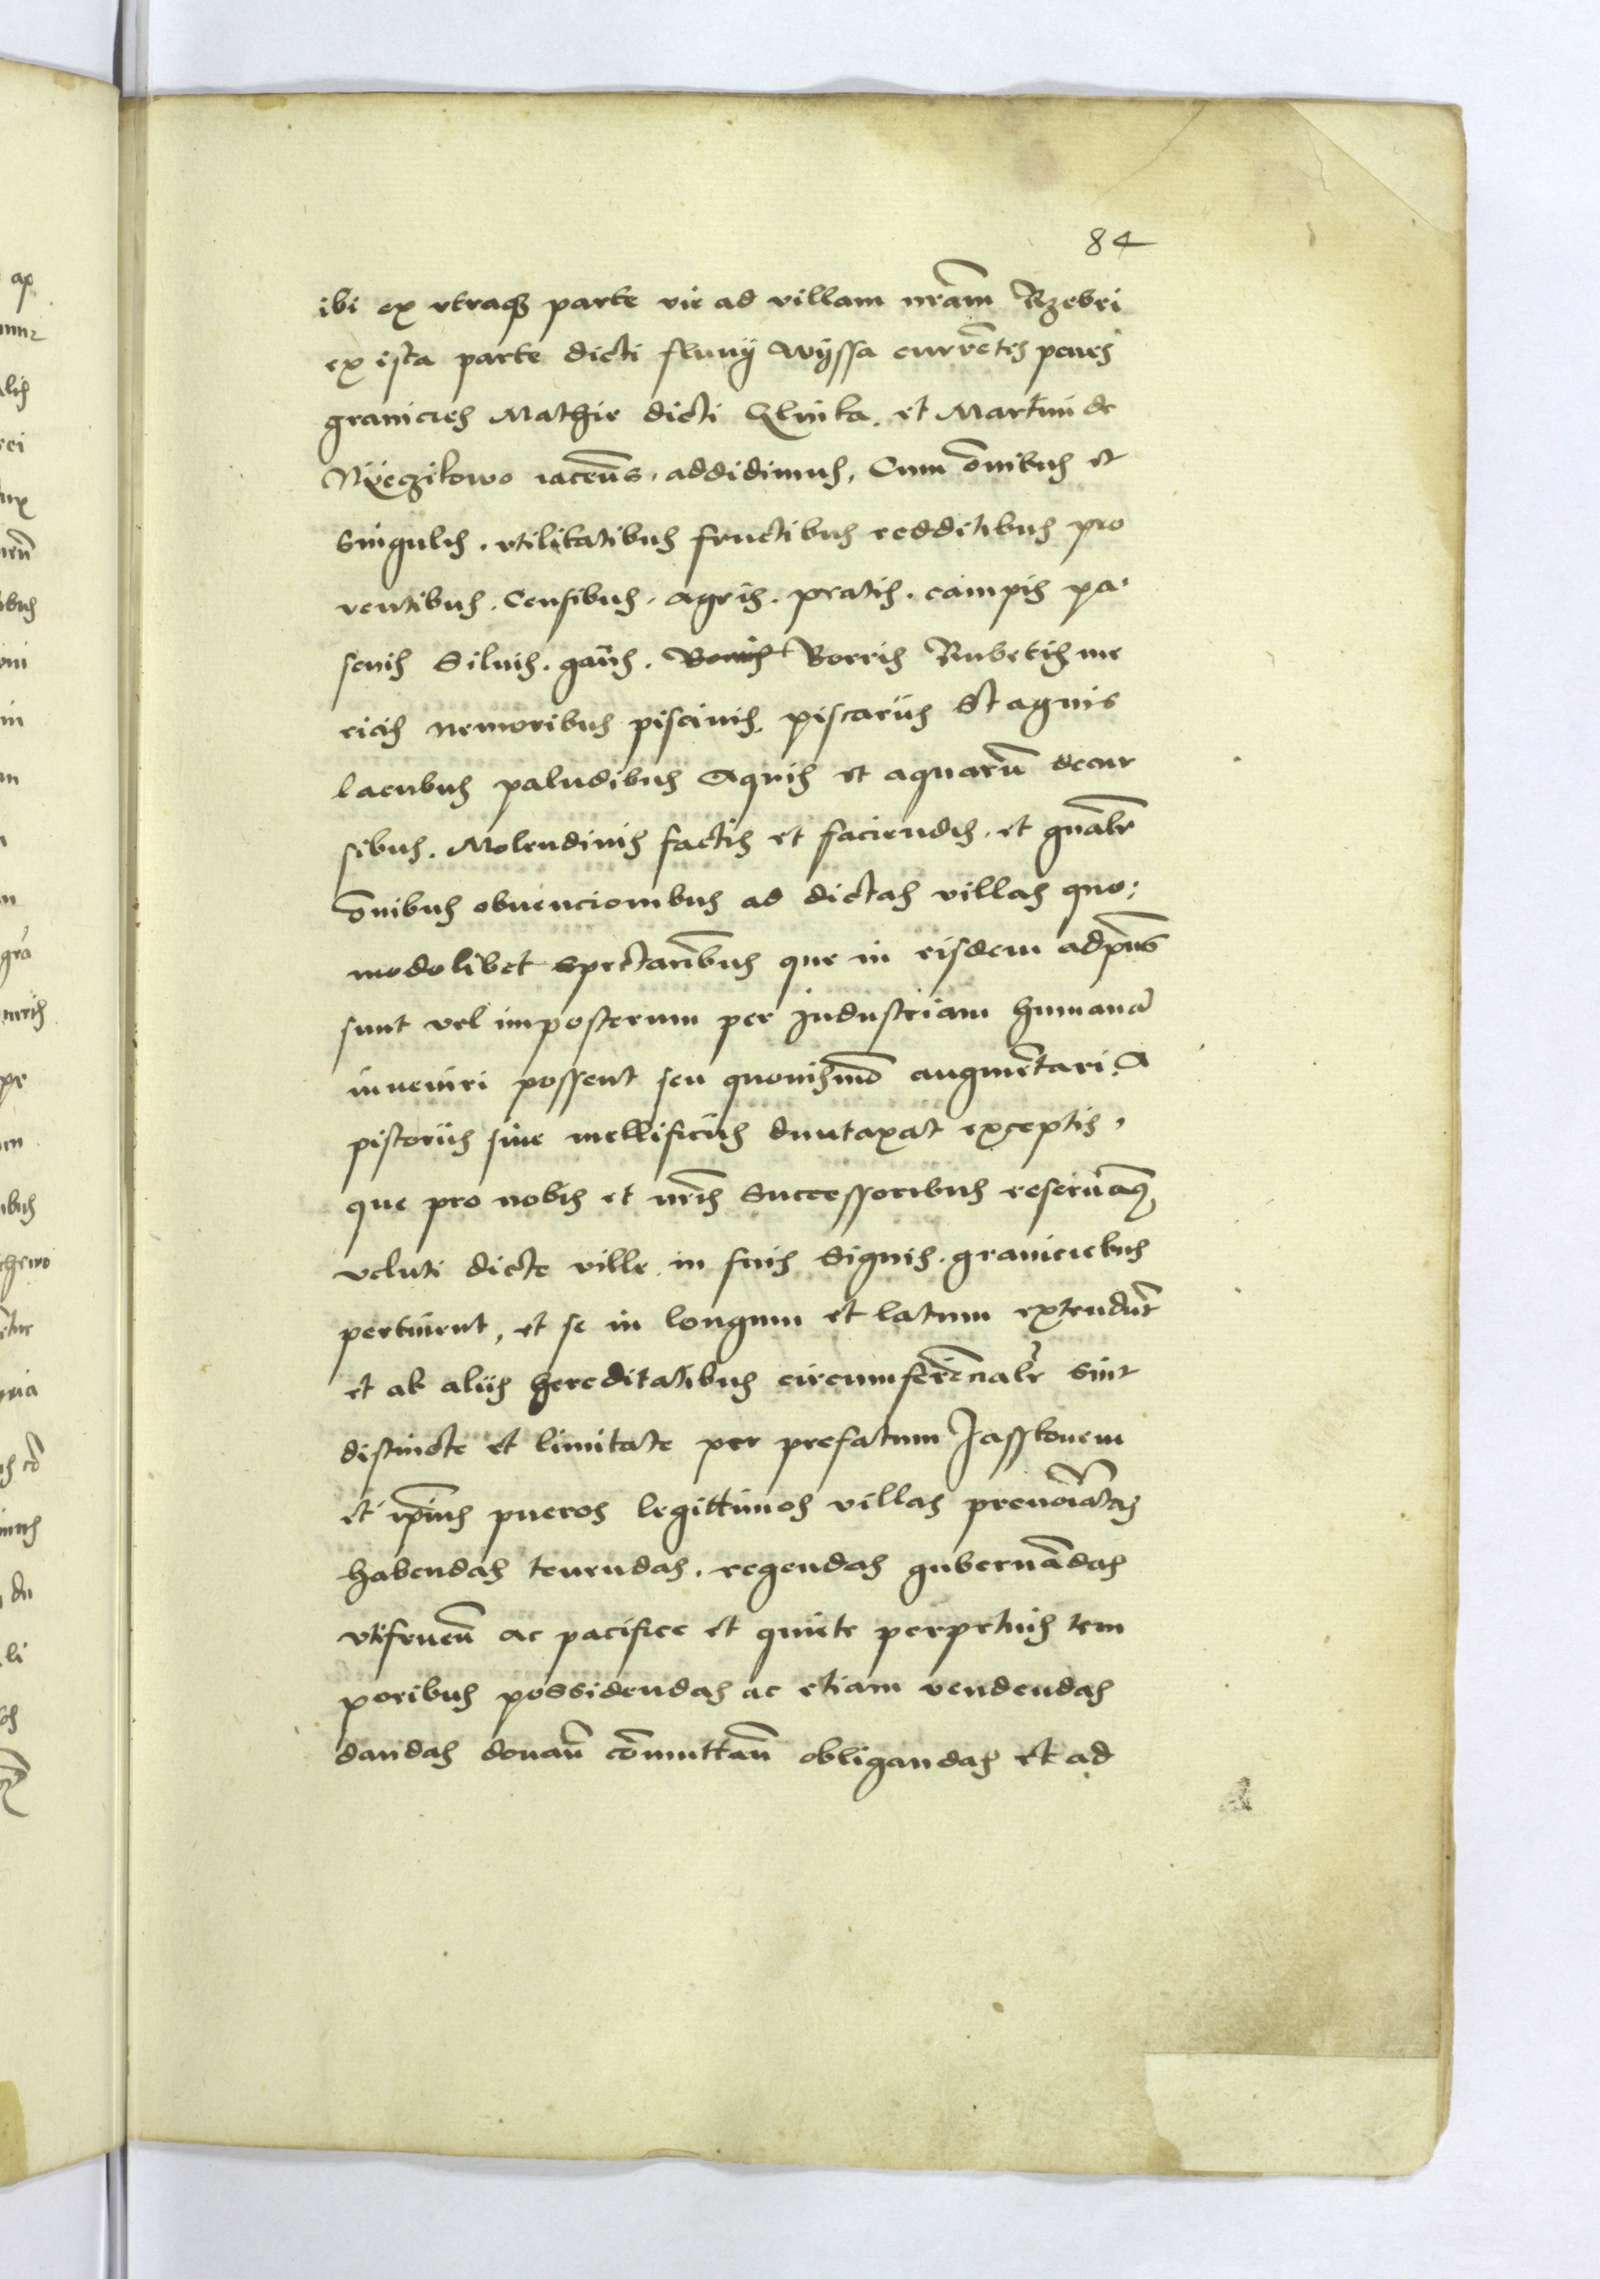 84
ibi ex vtraqz parte vie ad villam nrãm Rzebri
ex ista parte dicti fluuij Wÿssa currẽtis penes
granicies Mathie dicti Glinka. et Martini de
Nÿeczikowo iaceñs. addidimus, Cum õnibus et
Singulis. vtilitatibus fructibus redditibus pro
ventibus. Censibus. agris. pratis. campis pa-
scuis Siluis. gaũs. Borris Rubetis me
ricis nemoribus piscinis. piscariis Stagnis
lacubus paludibus Aquis et aquarũ decur
sibus. Molendinis factis et faciendis. et gñalr
õnibus obuencionibus ad dictas villas quo-
modolibet spectañbus que in eisdem adpñs
sunt vel imposterum per Industriam humanã
inueniri possent seu quouismõ augmẽtari. A
pistoriis siue mellificiis duntaxat exceptis.
que pro nobis et nrĩs Successoribus reseruãq
veluti dicte ville in suis Signis. graniciebus
pertinent, et se in longum et latum extendũt
et ab aliis hereditatibus circumferẽcialr sunt
distincte et limitate per prefatum Jasskonem
et ip̃ius pueros legittimos villas prenoĩatas
habendas tenendas. regendas gubernãdas
vtifrueñ ac pacifice et quiete perpetuis tem
poribus possidendas ac etiam vendendas
dandas donañ cõmuttañ obligandas et ad